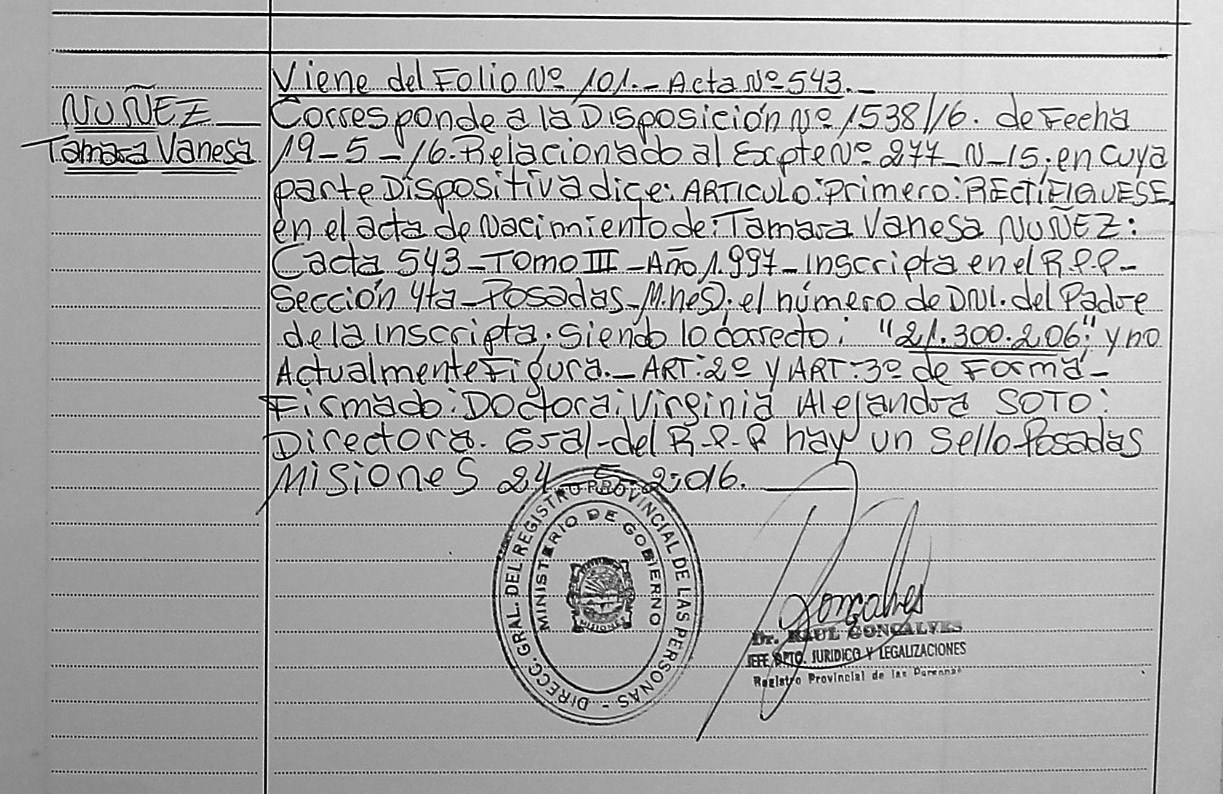 Viene del Folio Nº 101.- Acta Nº 543.-
NUÑEZ
Tamara Vanesa
Corresponde a la Disposición Nº 1538/16. de Fecha
19-5-16. Relacionado al Expte Nº 277-N-15; en cuya
parte Dispositiva dice: ARTICULO: Primero: RECTIFIQUESE
en el acta de Nacimiento de: Tamara Vanesa NUÑEZ:
Cacta 543-TOMO III-Año 1.997-Inscripta en el R.P.P-
Sección 4ta-Posadas-M.nes); el número de DNI. del Padre
de la inscripta; siendo lo correcto: "21.300.206;" y no
Actualmente Figura.- ART:2º y ART:3º de Forma-
Firmado: Doctora: Virginia Alejandra SOTO:
Directora. Gral-del R-P-P hay un sello-Posadas
Misiones 24-5-2.016.
DIRECC. GRAL. DEL REGISTRO PROVINCIAL DE LAS PERSONAS -
MINISTERIO DE GOBIERNO
MISIONES
Gonçalves
Dr. RAUL GONÇALVES
JEFE DPTO. JURIDICO Y LEGALIZACIONES
Registro Provincial de las Personas